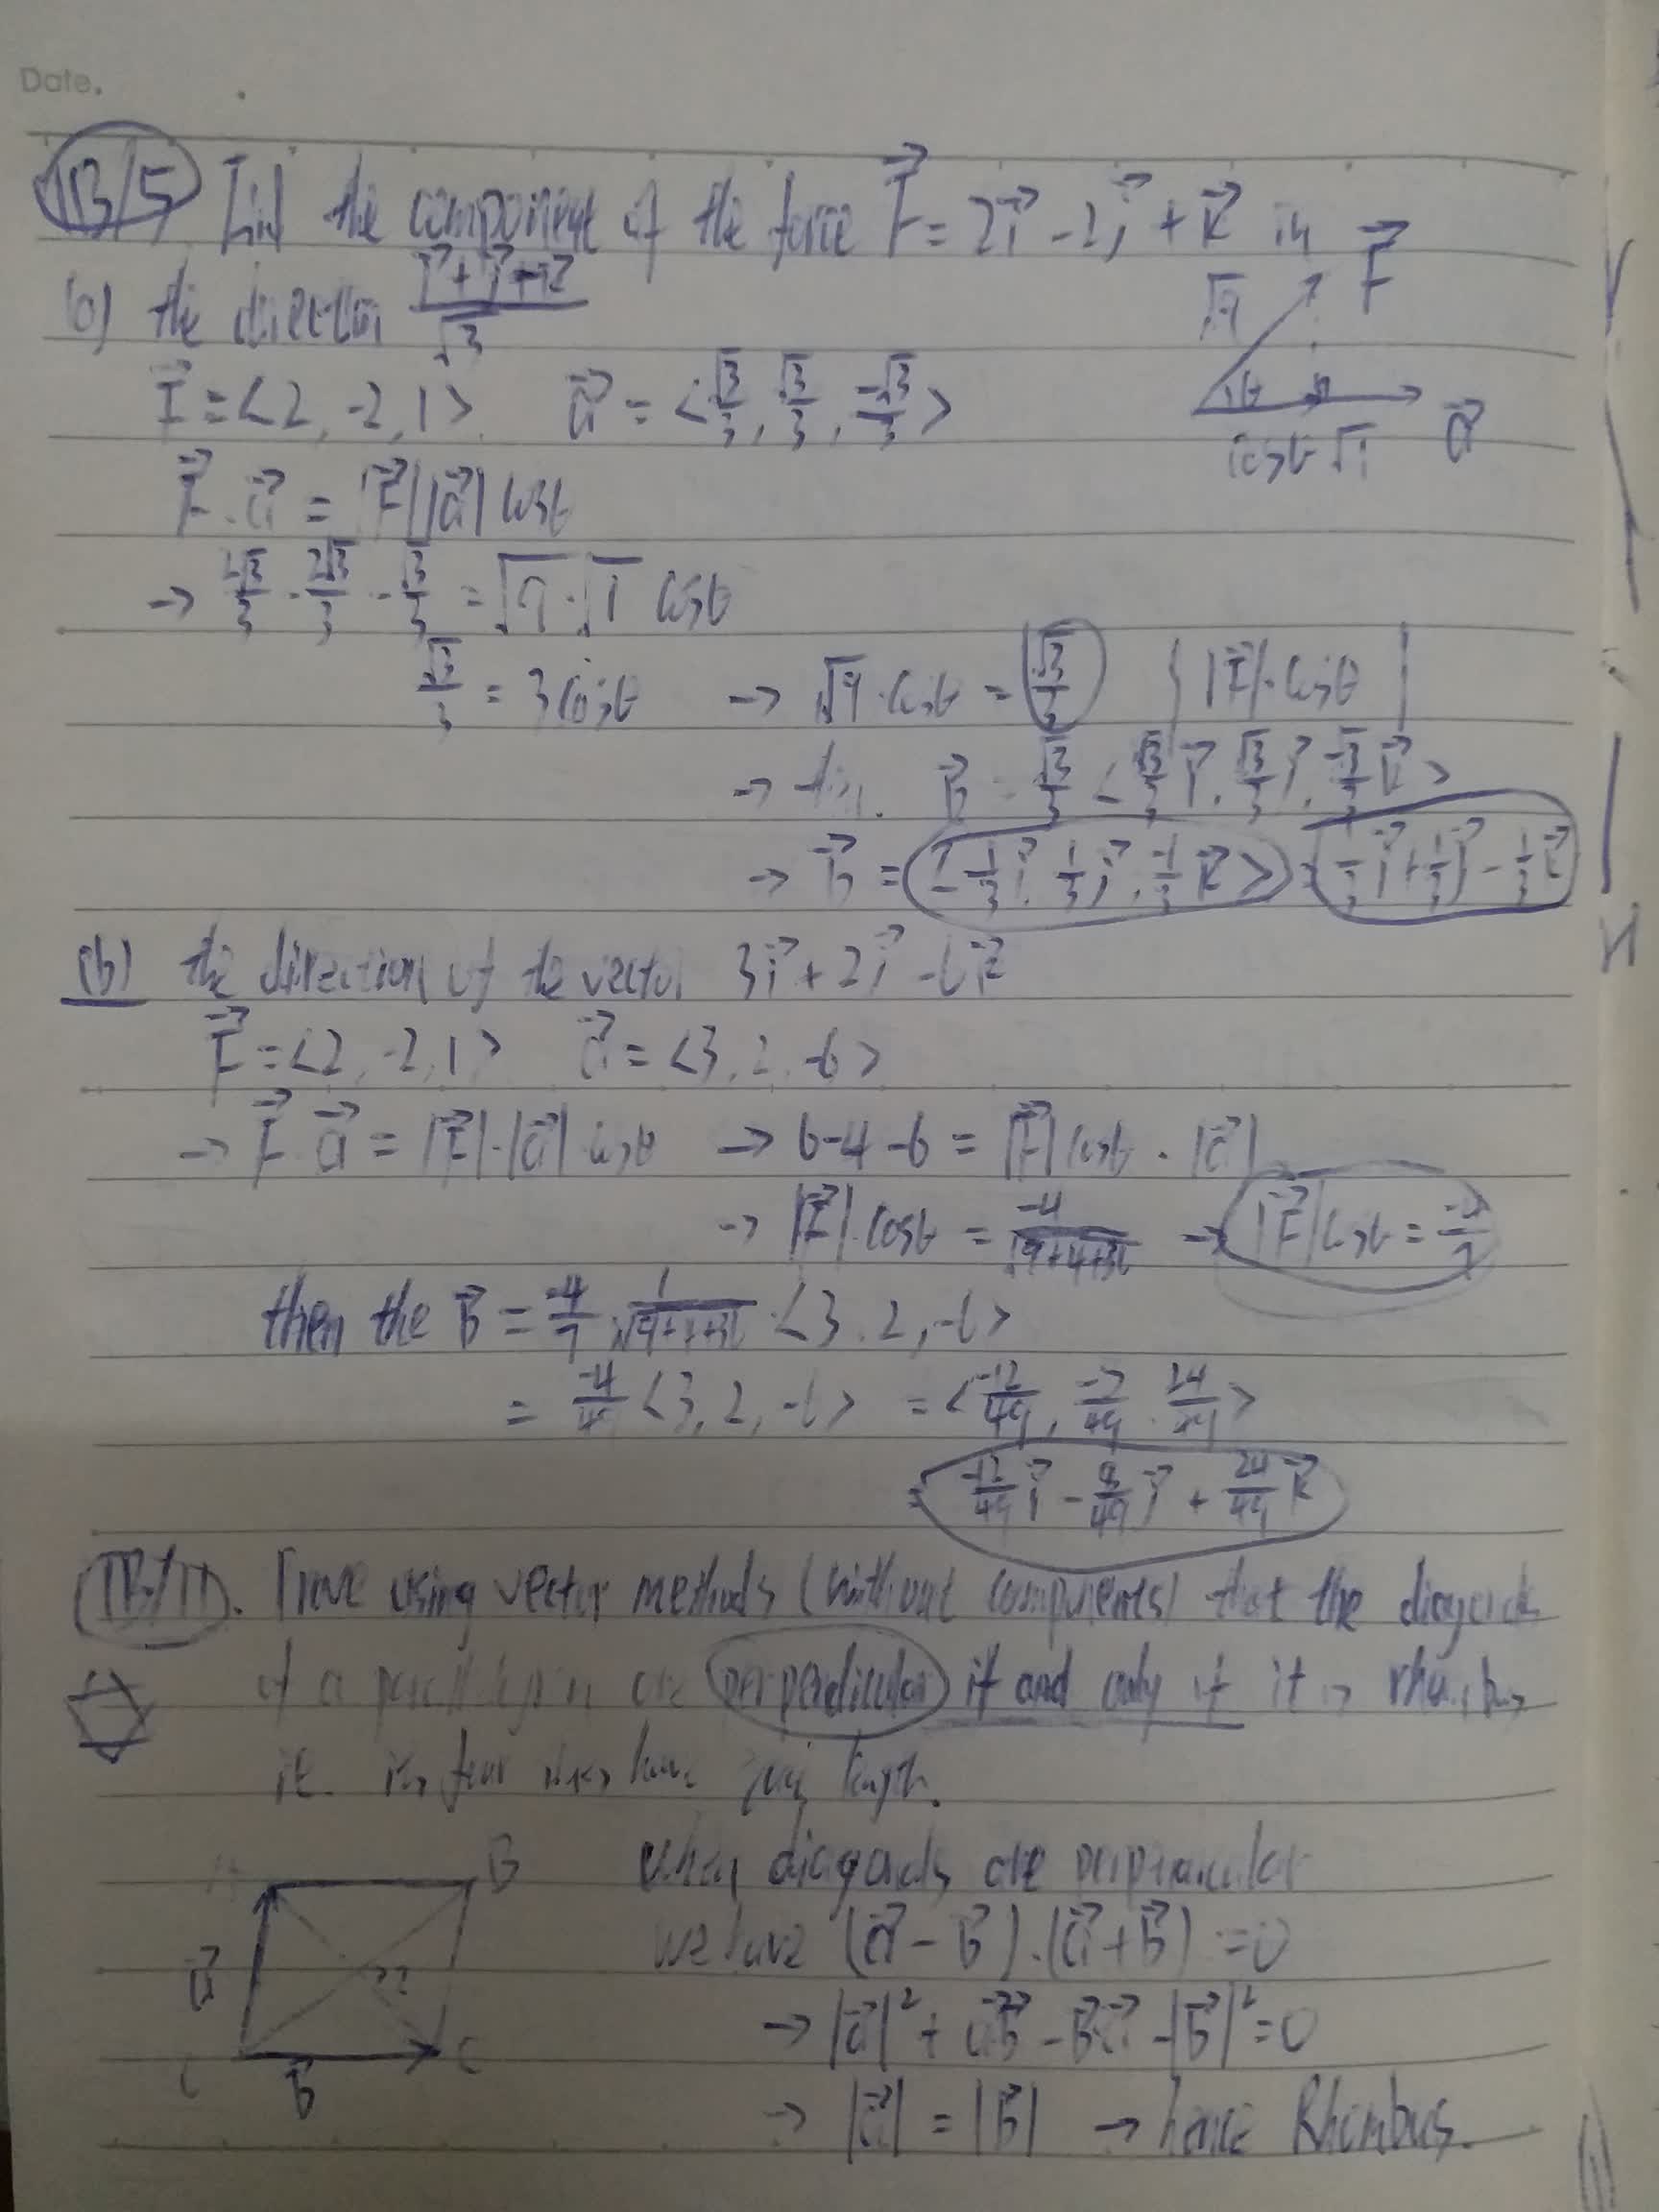 Date.
1B/5 Find the component of the force F⃗ = 2i⃗ - 2j⃗ + k⃗ in
(a) the direction (i⃗ + j⃗ - k⃗)/√3
√9 F⃗
F⃗ = <2, -2, 1> a⃗ = <√3/3, √3/3, -√3/3>
θ a⃗
cosθ √9
F⃗ · a⃗ = |F⃗||a⃗| cosθ
→ 2√3/3 - 2√3/3 - √3/3 = √9 · √1 cosθ
√3/3 = 3cosθ → √9 · cosθ = √3/3 |F⃗| · cosθ
→ b⃗ = √3/3 <√3/3 i⃗, √3/3 j⃗, -√3/3 k⃗>
→ b⃗ = <1/3 i⃗, 1/3 j⃗, -1/3 k⃗> = 1/3 i⃗ + 1/3 j⃗ - 1/3 k⃗
(b) the direction of the vector 3i⃗ + 2j⃗ - 6k⃗
F⃗ = <2, -2, 1> a⃗ = <3, 2, -6>
→ F⃗ · a⃗ = |F⃗| · |a⃗| cosθ → 6-4-6 = |F⃗| cosθ · |a⃗|
→ |F⃗| · cosθ = -4/√(9+4+36) → |F⃗| cosθ = -4/7
then the b⃗ = -4/7 · 1/√(9+4+36) · <3, 2, -6>
= -4/49 <3, 2, -6> = <-12/49, , 24/49>
= -12/49 i⃗ - 8/49 j⃗ + 24/49 k⃗
1B/11. Prove using vector methods (without components) that the diagonals
of a parallelogram are perpendicular if and only if it is rhombus,
ie. its four sides have length.
B when diagonals are perpendicular
we have (a⃗ - b⃗) · (a⃗ + b⃗) = 0
a⃗
→ |a⃗|² + a⃗b⃗ - b⃗a⃗ - |b⃗|² = 0
C
b⃗
→ |a⃗| = |b⃗| → hence Rhombus.